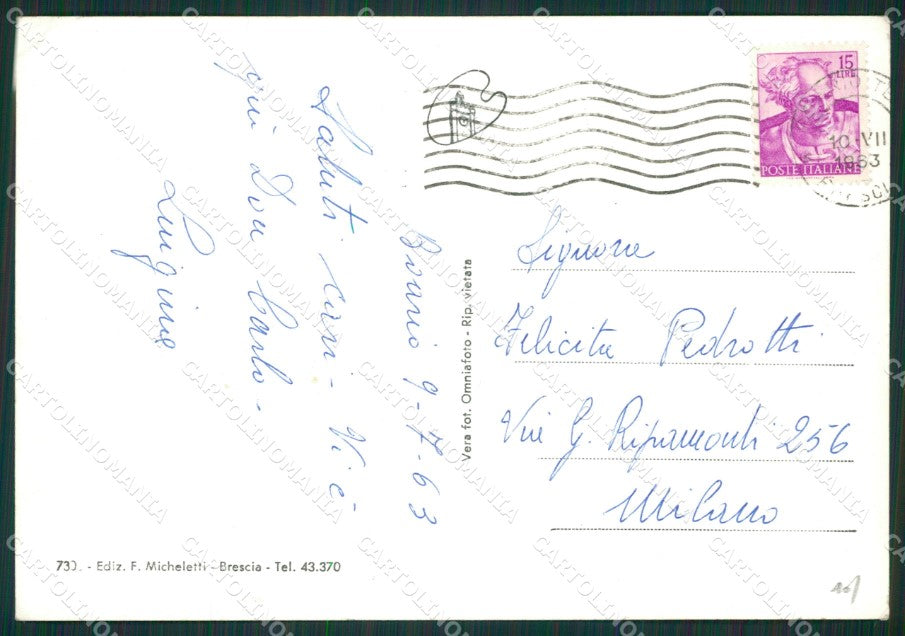 Boario 9-7-63
Saluti cari - Vi è
qui Don Carlo -
Luigina
Vera fot. Omniafoto - Rip. vietata
15
LIRE
POSTE ITALIANE
10 VII
1963
Signora
Felicita Pedrotti
Via G. Ripamonti 256
Milano
730. - Ediz. F. Micheletti - Brescia - Tel. 43.370
CARTOLINOMANIA